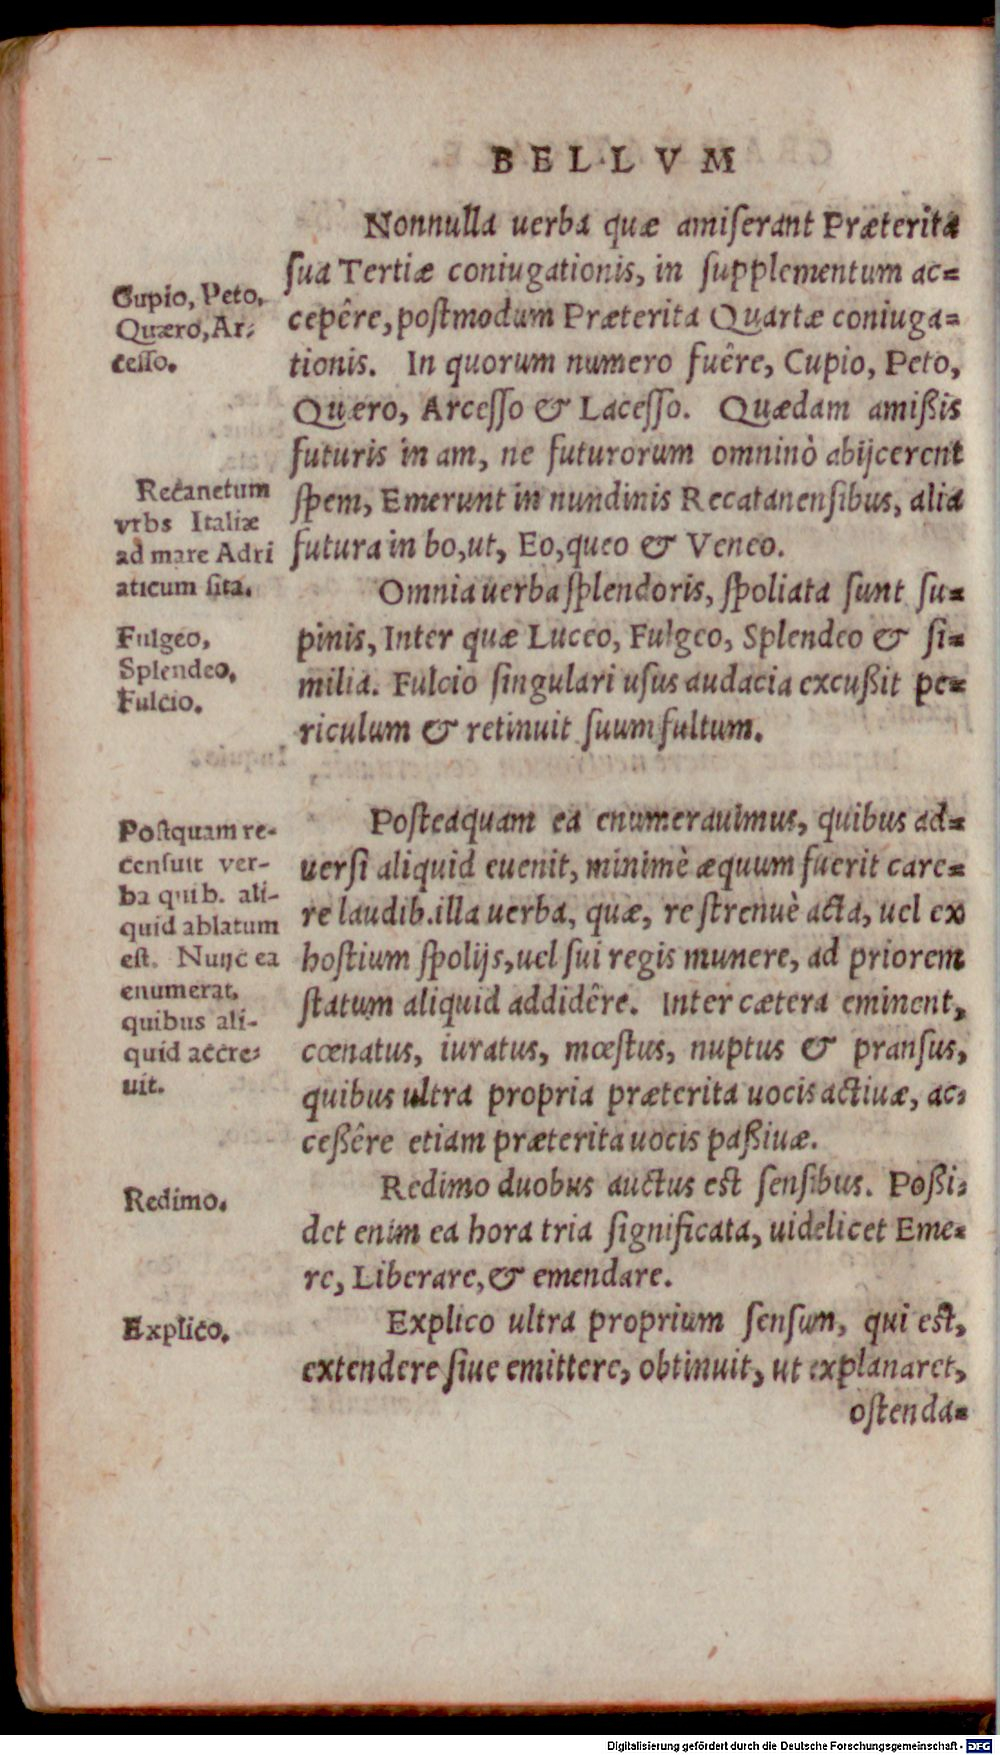 BELLVM
Nonnulla uerba quæ amiſerant Præterita
ſua Tertiæ coniugationis, in ſupplementum ac=
cepêre, poſtmodum Præterita Quartæ coniuga=
tionis. In quorum numero fuêre, Cupio, Peto,
Quæro, Arceſſo & Laceſſo. Quædam amißis
futuris in am, ne futurorum omninò abijcerent
ſpem, Emerunt in nundinis Recatanenſibus, alia
futura in bo, ut, Eo, queo & Veneo.
Omnia uerba ſplendoris, ſpoliata ſunt ſu=
pinis, Inter quæ Luceo, Fulgeo, Splendeo & ſi=
milia. Fulcio ſingulari uſus audacia excußit pe=
riculum & retinuit ſuum fultum.
Poſteaquam ea enumerauimus, quibus ad=
uerſi aliquid euenit, minimè æquum fuerit care=
re laudib. illa uerba, quæ, re ſtrenuè acta, uel ex
hoſtium ſpolijs, uel ſui regis munere, ad priorem
ſtatum aliquid addidêre. Inter cætera eminent,
cœnatus, iuratus, mœſtus, nuptus & pranſus,
quibus ultra propria præterita uocis actiuæ, ac=
ceßêre etiam præterita uocis paßiuæ.
Redimo duobus auctus est ſenſibus. Poßi=
det enim ea hora tria ſignificata, uidelicet Eme=
re, Liberare, & emendare.
Explico ultra proprium ſenſum, qui eſt,
extendere ſiue emittere, obtinuit, ut explanaret,
oſtenda=
Cupio, Peto,
Quæro, Ar=
ceſſo.
Recanetum
vrbs Italiæ
ad mare Adri
aticum ſita.
Fulgeo,
Splendeo,
Fulcio.
Poſtquam re-
cenſuit ver-
ba quib. ali-
quid ablatum
eſt. Nunc ea
enumerat,
quibus ali-
quid accre=
uit.
Redimo.
Explico.
Digitalisierung gefördert durch die Deutsche Forschungsgemeinschaft - DFG